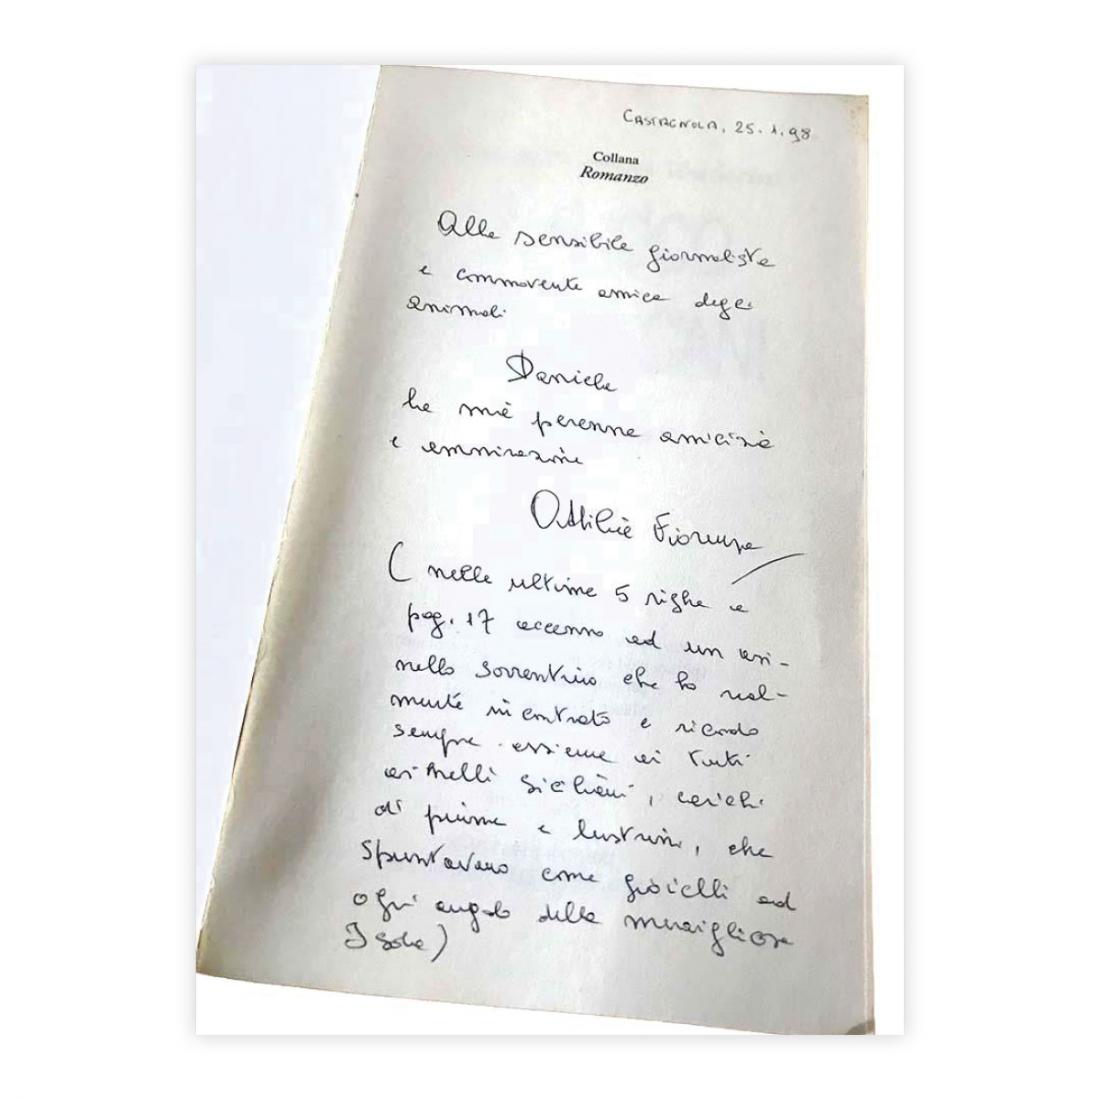 CASTAGNOLA, 25.1.98
Collana
Romanzo
Alla sensibile giornalista
e commovente amica degli
animali
Daniela
la mia perenne amicizia
e ammirazione
Ottilia Fiorenza
( nelle ultime 5 righe a
pag. 17 accenno ad un asi-
nello sorrentino che ho real-
mente incontrato e ricordo
sempre assieme ai tanti
asinelli siciliani, carichi
di piume e lustrini, che
spuntavano come gioielli ad
ogni angolo della meravigliosa
Isola)